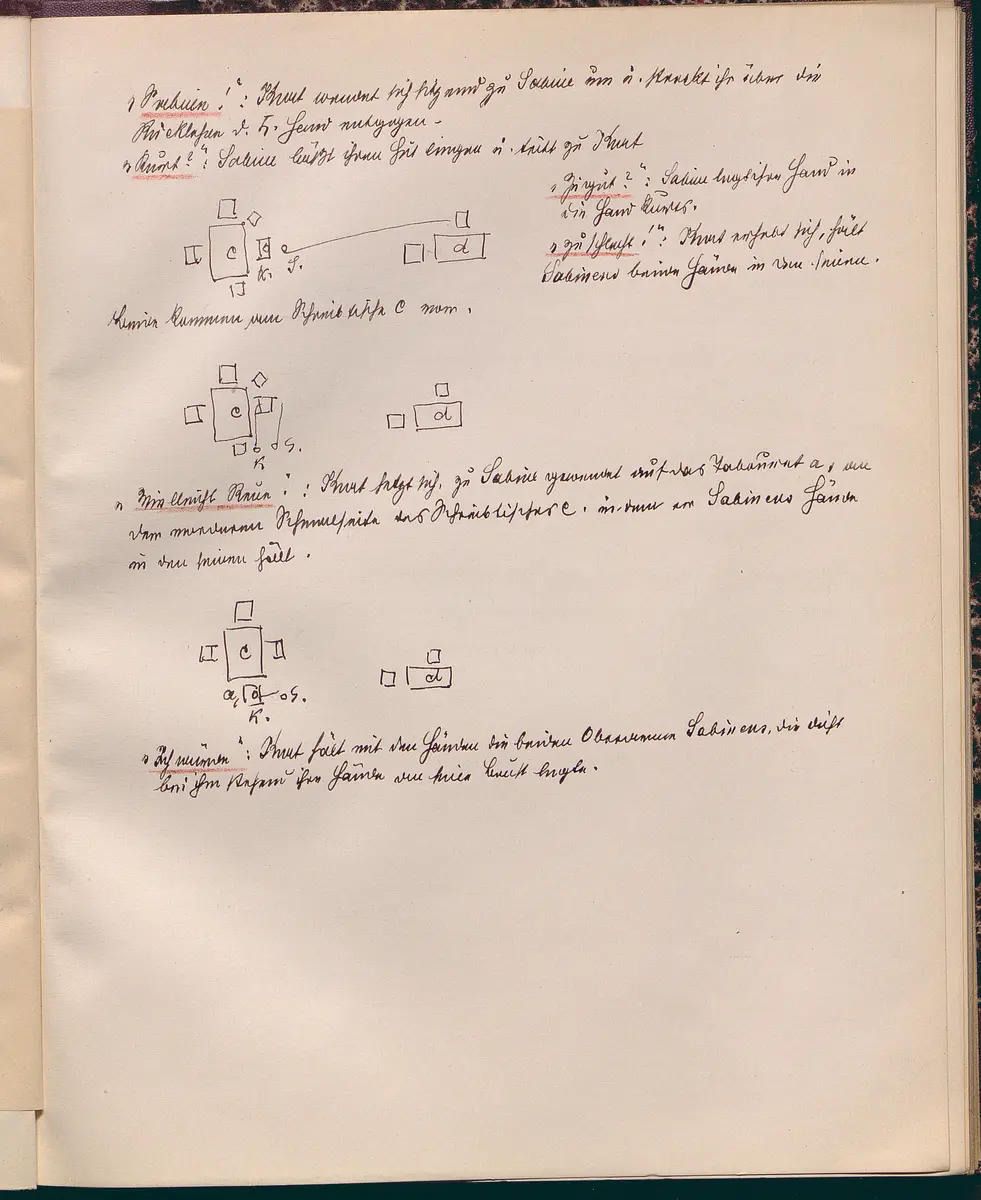 „Sabine!“: Kurt wendet sich sitzend zu Sabine um u. streckt ihr über die
Rücklehne d. r. Hand entgegen –
„Kurt?“: Sabine läßt ihren Hut liegen u. tritt zu Kurt
„Zu gut?“: Sabine legt ihre Hand in
die Hand Kurts.
„Zu schlecht!“: Kurt erhebt sich, hält
Sabinens beide Hände in den seinen.
c d
K. S.
Beide kommen am Schreibtische C vor.
c d
K S.
„Vielleicht Reue“: Kurt setzt sich, zu Sabine gewendet auf das Tabouret a, an
der vorderen Schmalseite des Schreibtisches C, indem er Sabinens Hände
in den seinen hält.
c d
a, S.
K.
„Ich würde“: Kurt hält mit den Händen die beiden Oberarme Sabinens, die dicht
bei ihm stehend ihre Hände an seine Brust legte.